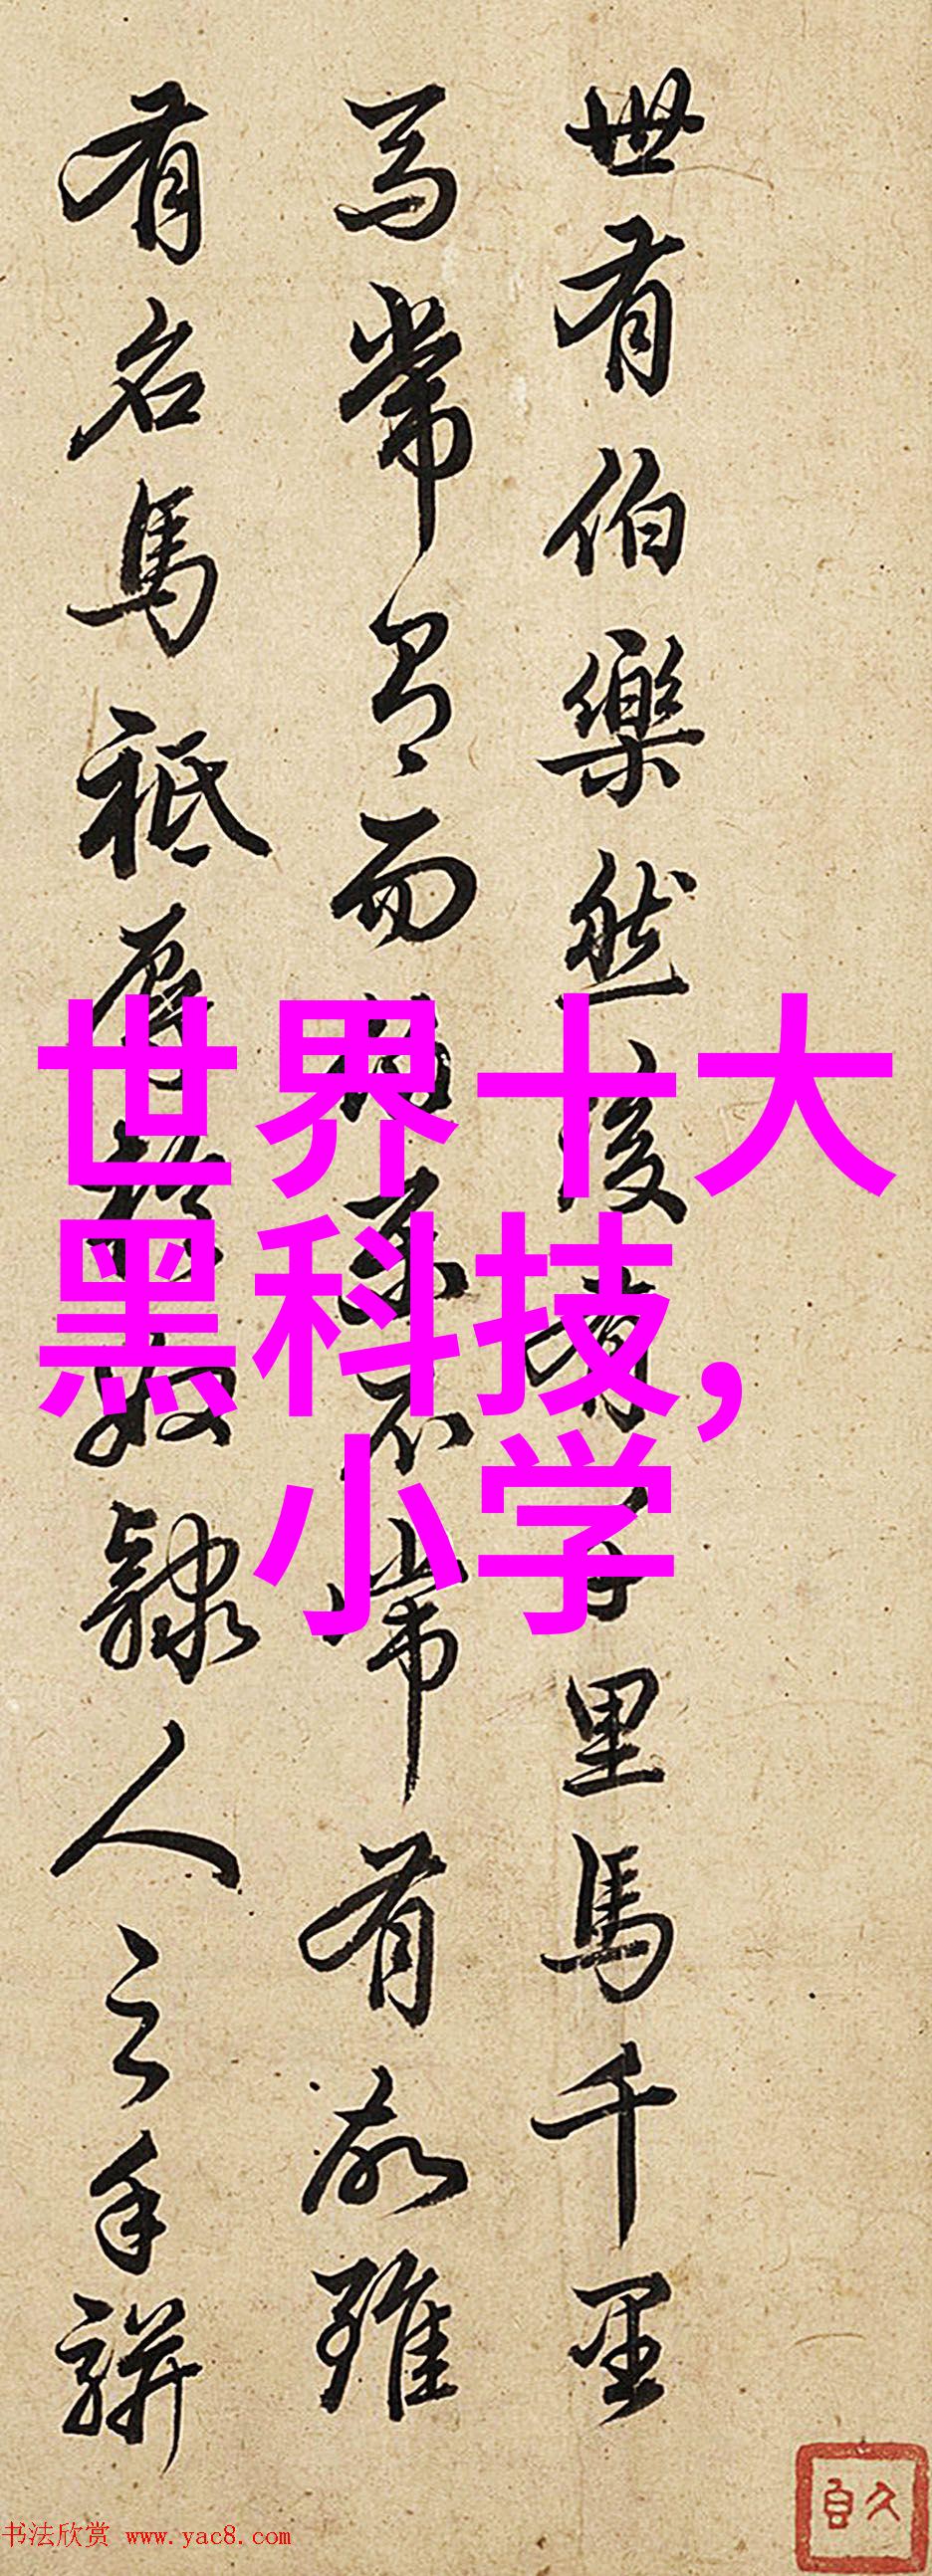 世有伯樂然後有千里馬千里
馬常有而伯樂不常有故雖
有名馬祗辱於奴隸人之手駢
世界十大
黑科技,
小学
书法欣赏 www.yac8.com